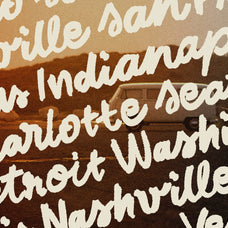 ville san
Indianap
arlotte sea
etroit Washi
Nashville
Ve